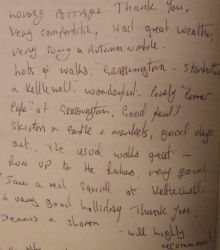 Cottage Thank You,
very comfortable, Had great weather,
very sunny & Autumn
hots of walks. Grassington -
& Kettlewell wonderful. Lovely "Corner
Cafe" at Grassington. Good food!
Skipton & castle & markets, good days
out. The usual walks great -
up to the very good
Save a red Squirrel at Kettlewell
a very good holiday Thank You
- will highly
recommend